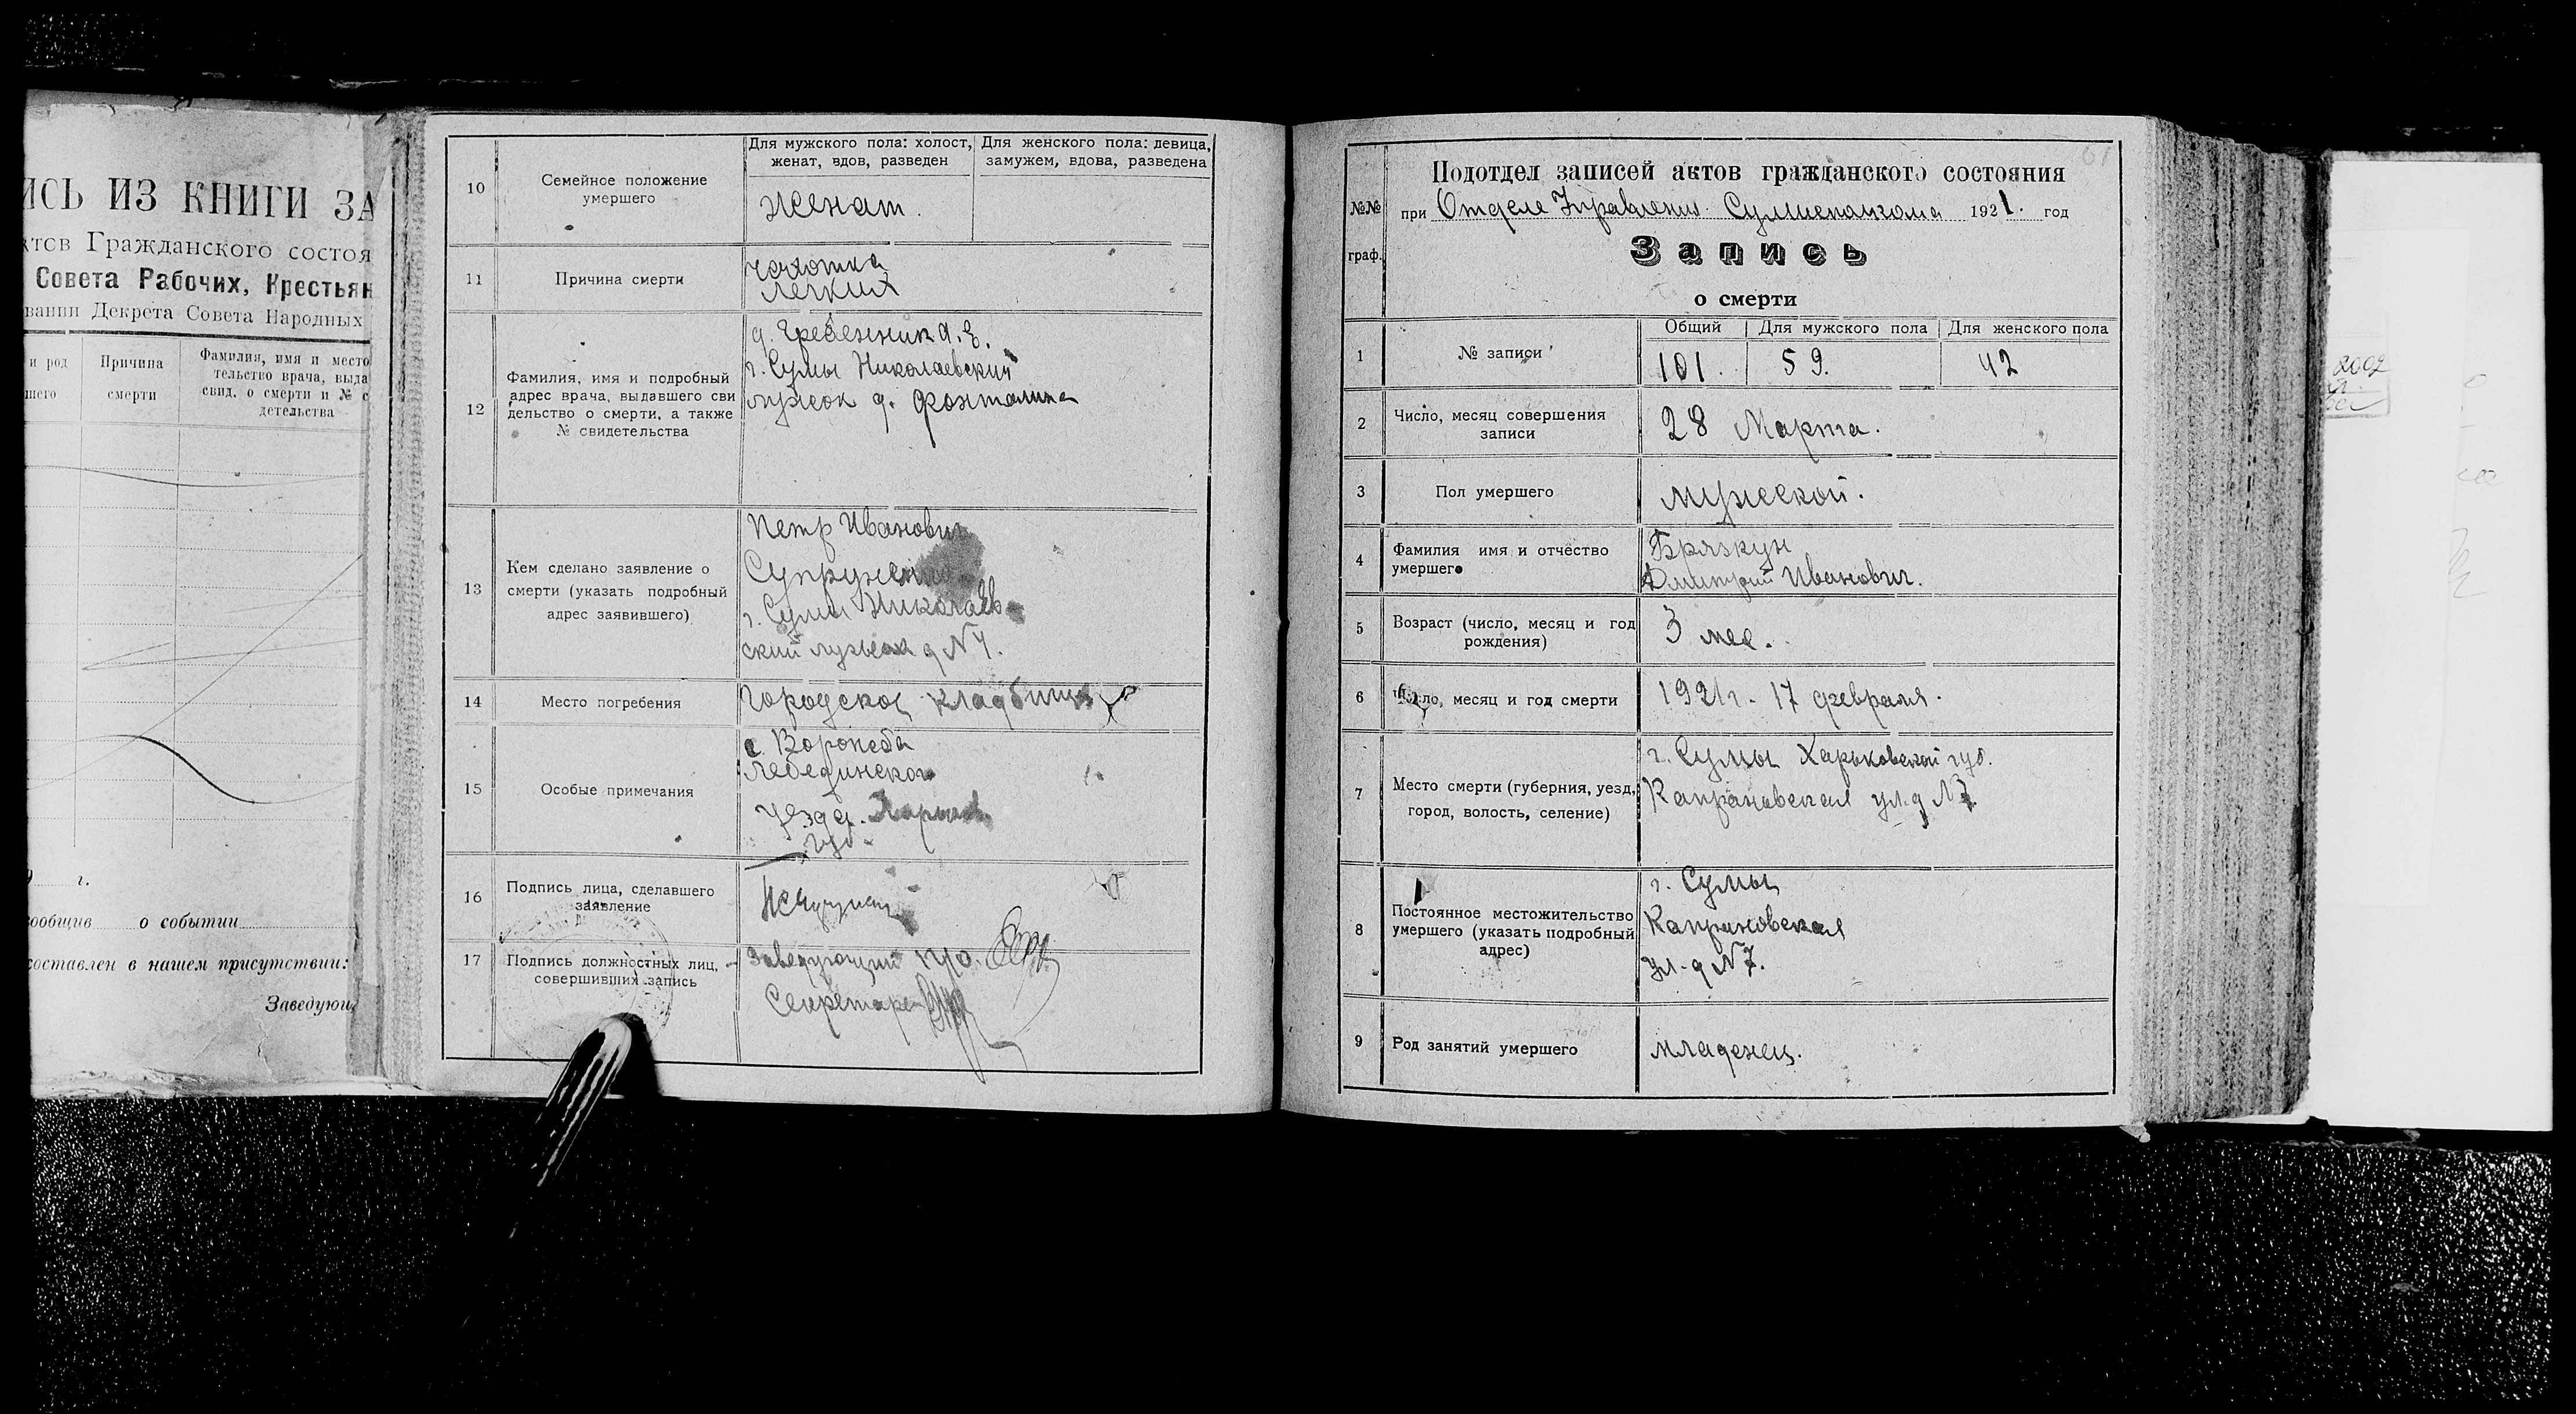 ИСЬ ИЗ КНИГИ ЗА
ктов Гражданского состоя
Совета Рабочих, Крестьян
вании Декрета Совета Народных
и род
шего
Причина
смерти
Фамилия, имя и место
тельство врача, выда
свид. о смерти и № с
детельства
г.
сообщив о событии
составлен в нашем присутствии:
Заведующ
10
Семейное положение
умершего
Для мужского пола: холост,
женат, вдов, разведен
Для женского пола: девица,
замужем, вдова, разведена
Женат.
11
Причина смерти
чахотка
легких
12
Фамилия, имя и подробный
адрес врача, выдавшего сви
детельство о смерти, а также
№ свидетельства
г. Сумы Николаевский
д.
13
Кем сделано заявление о
смерти (указать подробный
адрес заявившего)
Петр Иванович
г. Сумы Николаев
ский д №
14
Место погребения
Городское кладбище
15
Особые примечания
с.
Лебединского
уезда. Харьков.
губ.
16
Подпись лица, сделавшего
заявление
17
Подпись должностных лиц,
совершивших запись
Заведующий п/о.
Секретарь
61
№№
граф.
Подотдел записей актов гражданского состояния
при Отделе Управления 1921. год
Запись
о смерти
1
№ записи
Общий
Для мужского пола
Для женского пола
101.
59.
42
2
Число, месяц совершения
записи
28 Марта.
3
Пол умершего
мужской.
4
Фамилия имя и отчество
умершего
Брязкун
Дмитрий Иванович.
5
Возраст (число, месяц и год
рождения)
3 мес.
6
Число, месяц и год смерти
1921г. 17 февраля.
7
Место смерти (губерния, уезд,
город, волость, селение)
г. Сумы Харьковской губ.
ул. д №7
8
Постоянное местожительство
умершего (указать подробный
адрес)
г. Сумы
ул. д №7.
9
Род занятий умершего
младенец.
2002